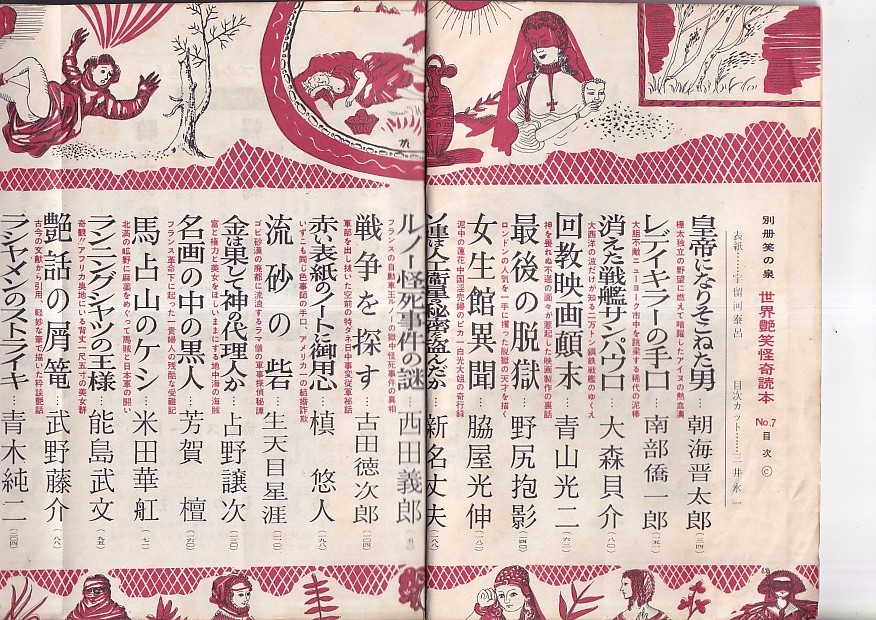 別册笑の泉 世界艶笑怪奇読本 No.7 目次 ©
表紙……宇留河泰呂 目次カット……三井永一
皇帝になりそこねた男…朝海晋太郎 (三四)
樺太独立の野望に燃えて暗躍したアイヌの熱血漢
レディキラーの手口…南部僑一郎 (五一)
大胆不敵ニューヨーク市中を跳梁する稀代の泥棒
消えた戦艦サンパウロ…大森貝介 (八〇)
大西洋の波だけが知る二万トン鋼鉄戦艦のゆくえ
回教映画顛末…青山光二 (六二)
神を畏れぬ不逞の面々が惹起した映画製作の裏話
最後の脱獄…野尻抱影 (四〇)
ロンドンの人気を一手に攫った脱獄の天才を描く
女生館異聞…脇屋光伸 (一八〇)
泥中の蓮花中国淫売婦のピカ一白光大姐の奇行録
ソ連は人工衛星秘密を盗んだか…新名丈夫 (八八)
ルノー怪死事件の謎…西田義郎
フランスの自動車王ルノーの獄中怪死事件の真相
戦争を探す…古田徳次郎 (一〇四)
軍部を出し抜いた空前の特ダネ日中事変従軍秘話
赤い表紙のノートに御用心…槙悠人 (一九八)
いずこも同じ色事師の手口、アメリカ一の結婚詐欺
流砂の砦…生天目星涯 (一一〇)
ゴビ砂漠の廃都に流浪するラマ僧の軍事探偵秘譚
金は果して神の代理人か…占野譲次 (一三〇)
富と権力と美女をほしいままにする地中海の海賊
名画の中の黒人…芳賀檀 (一二六)
フランス革命下に起った一貴婦人の残酷な受難記
馬占山のケシ…米田華舡 (七一)
北満の曠野に麻薬をめぐって馬賊と日本軍の闘い
ランニングシャツの王様…能島武文 (九五)
奇観!!アフリカ奥地にいる背丈一尺五寸の美女群
艶話の屑篭…武野藤介 (一八八)
古今の文献から引用、軽妙な筆で描いた粋談艶話
ラシャメンのストライキ…青木純二 (二〇四)